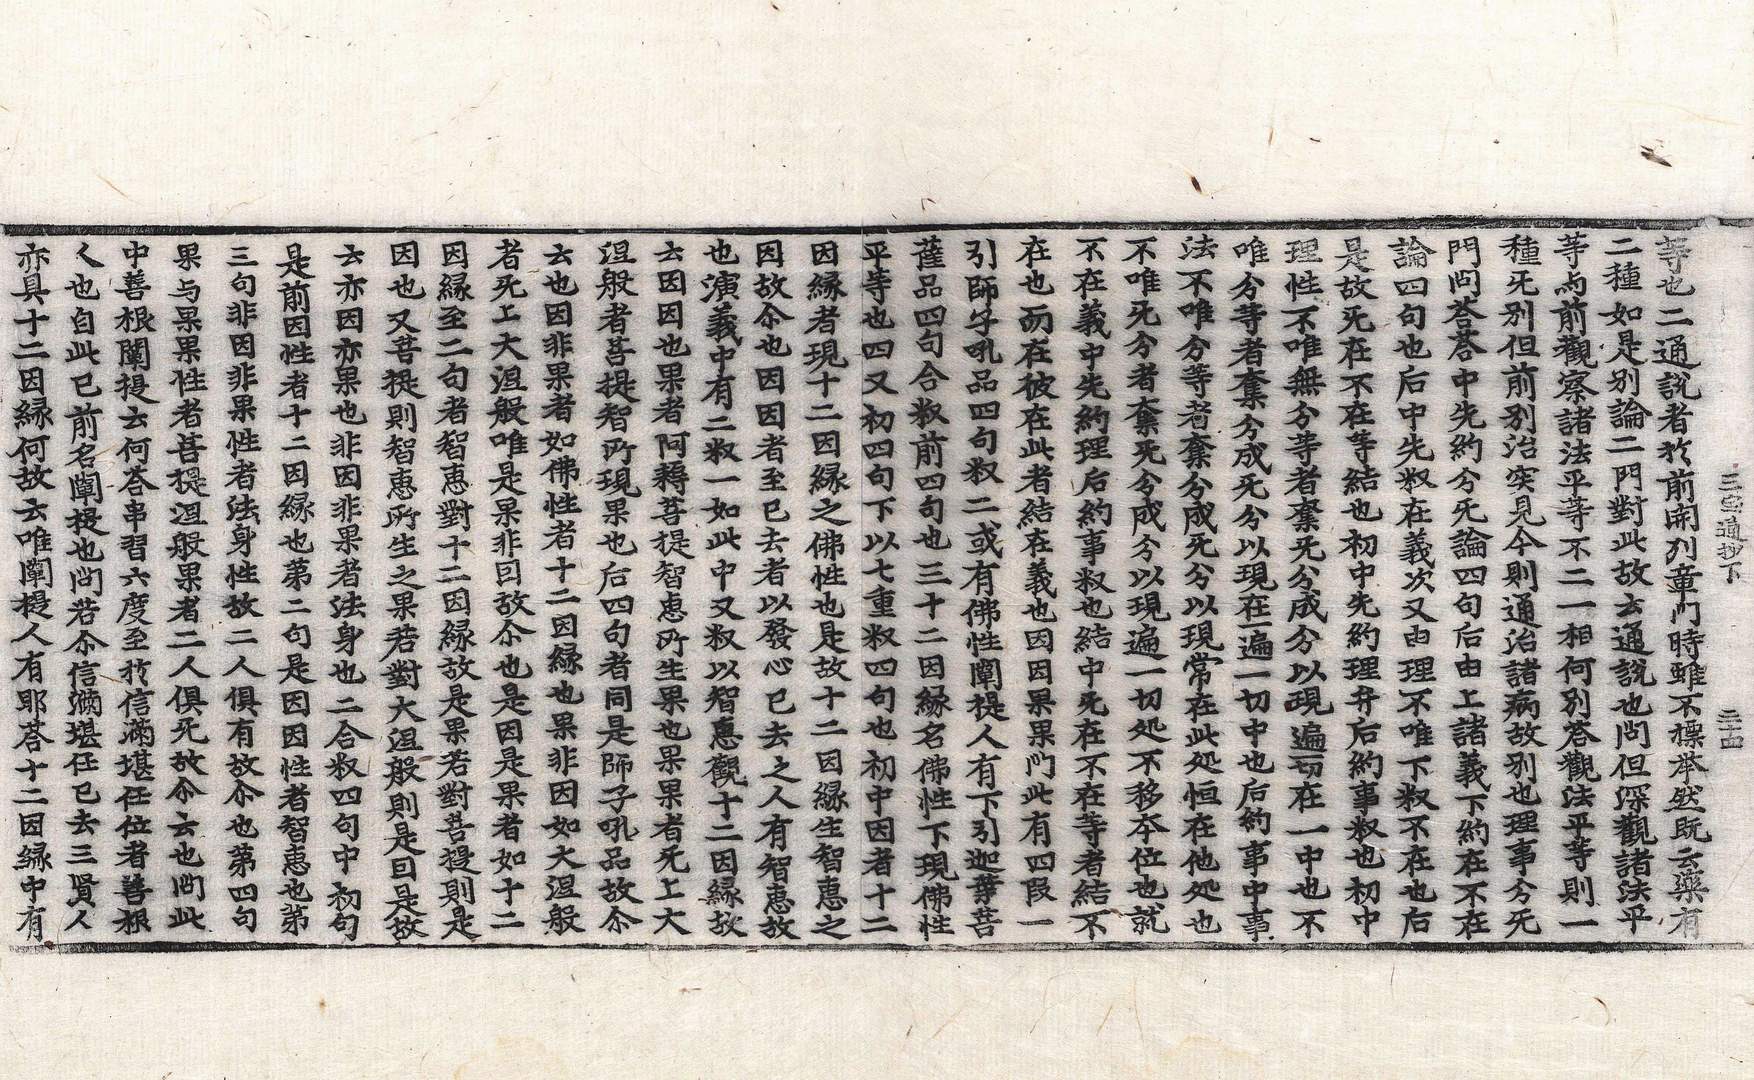 三宝通抄下 二十四
等也二通說者於前開列章門時雖不標举然既云藥有
二種如是別論二門對此故云通說也問但深觀諸法平
等与前觀察諸法平等不二一相何別答觀法平等則一
種无別但前別治突見今則通治諸病故別也理事分无
門問荅荅中先約分无論四句后由上諸義下約在不在
論四句也后中先叙在義次又由理不唯下叙不在也后
是故无在不在等結也初中先約理弁后約事叙也初中
理性不唯無分等者棄无分成分以現遍一切在一中也不
唯分等者奪分成无分以現在一遍一切中也后約事中事
法不唯分等者奪分成无分以現常在此処恒在他処也
不唯无分者奪无分成分以現遍一切処不移夲位也就
不在義中先約理后約事叙也結中无在不在等者結不
在也而在彼在此者結在義也因因果果門此有四段一
引師子吼品四句叙二或有佛性闡提人有下引迦葉菩
薩品四句合叙前四句也三十二因縁名佛性下現佛性
平等也四又初四句下以七重叙四句也初中因者十二
因縁者現十二因縁之佛性也是故十二因縁生智惠之
因故尒也因因者至已去者以發心已去之人有智惠故
也演義中有二叙一如此中又叙以智惠觀十二因縁故
云因因也果者阿耨菩提智惠所生果也果果者无上大
涅般者菩提智所現果也后四句者同是師子吼品故尒
云也因非果者如佛性者十二因縁也果非因如大涅般
者无上大涅般唯是果非囙故尒也是因是果者如十二
因縁至二句者智惠對十二因縁故是果若對菩提則是
因也又菩提則智惠所生之果若對大涅般則是囙是故
云亦因亦果也非因非果者法身也二合叙四句中初句
是前因性者十二因縁也第二句是因因性者智惠也第
三句非因非果性者法身性故二人俱有故尒也第四句
果与果果性者菩提涅般果者二人俱无故尒云也問此
中善根闡提云何荅串習六度至於信滿堪任位者善根
人也自此已前名闡提也問若尒信滿堪任已去三賢人
亦具十二因縁何故云唯闡提人有耶荅十二因縁中有